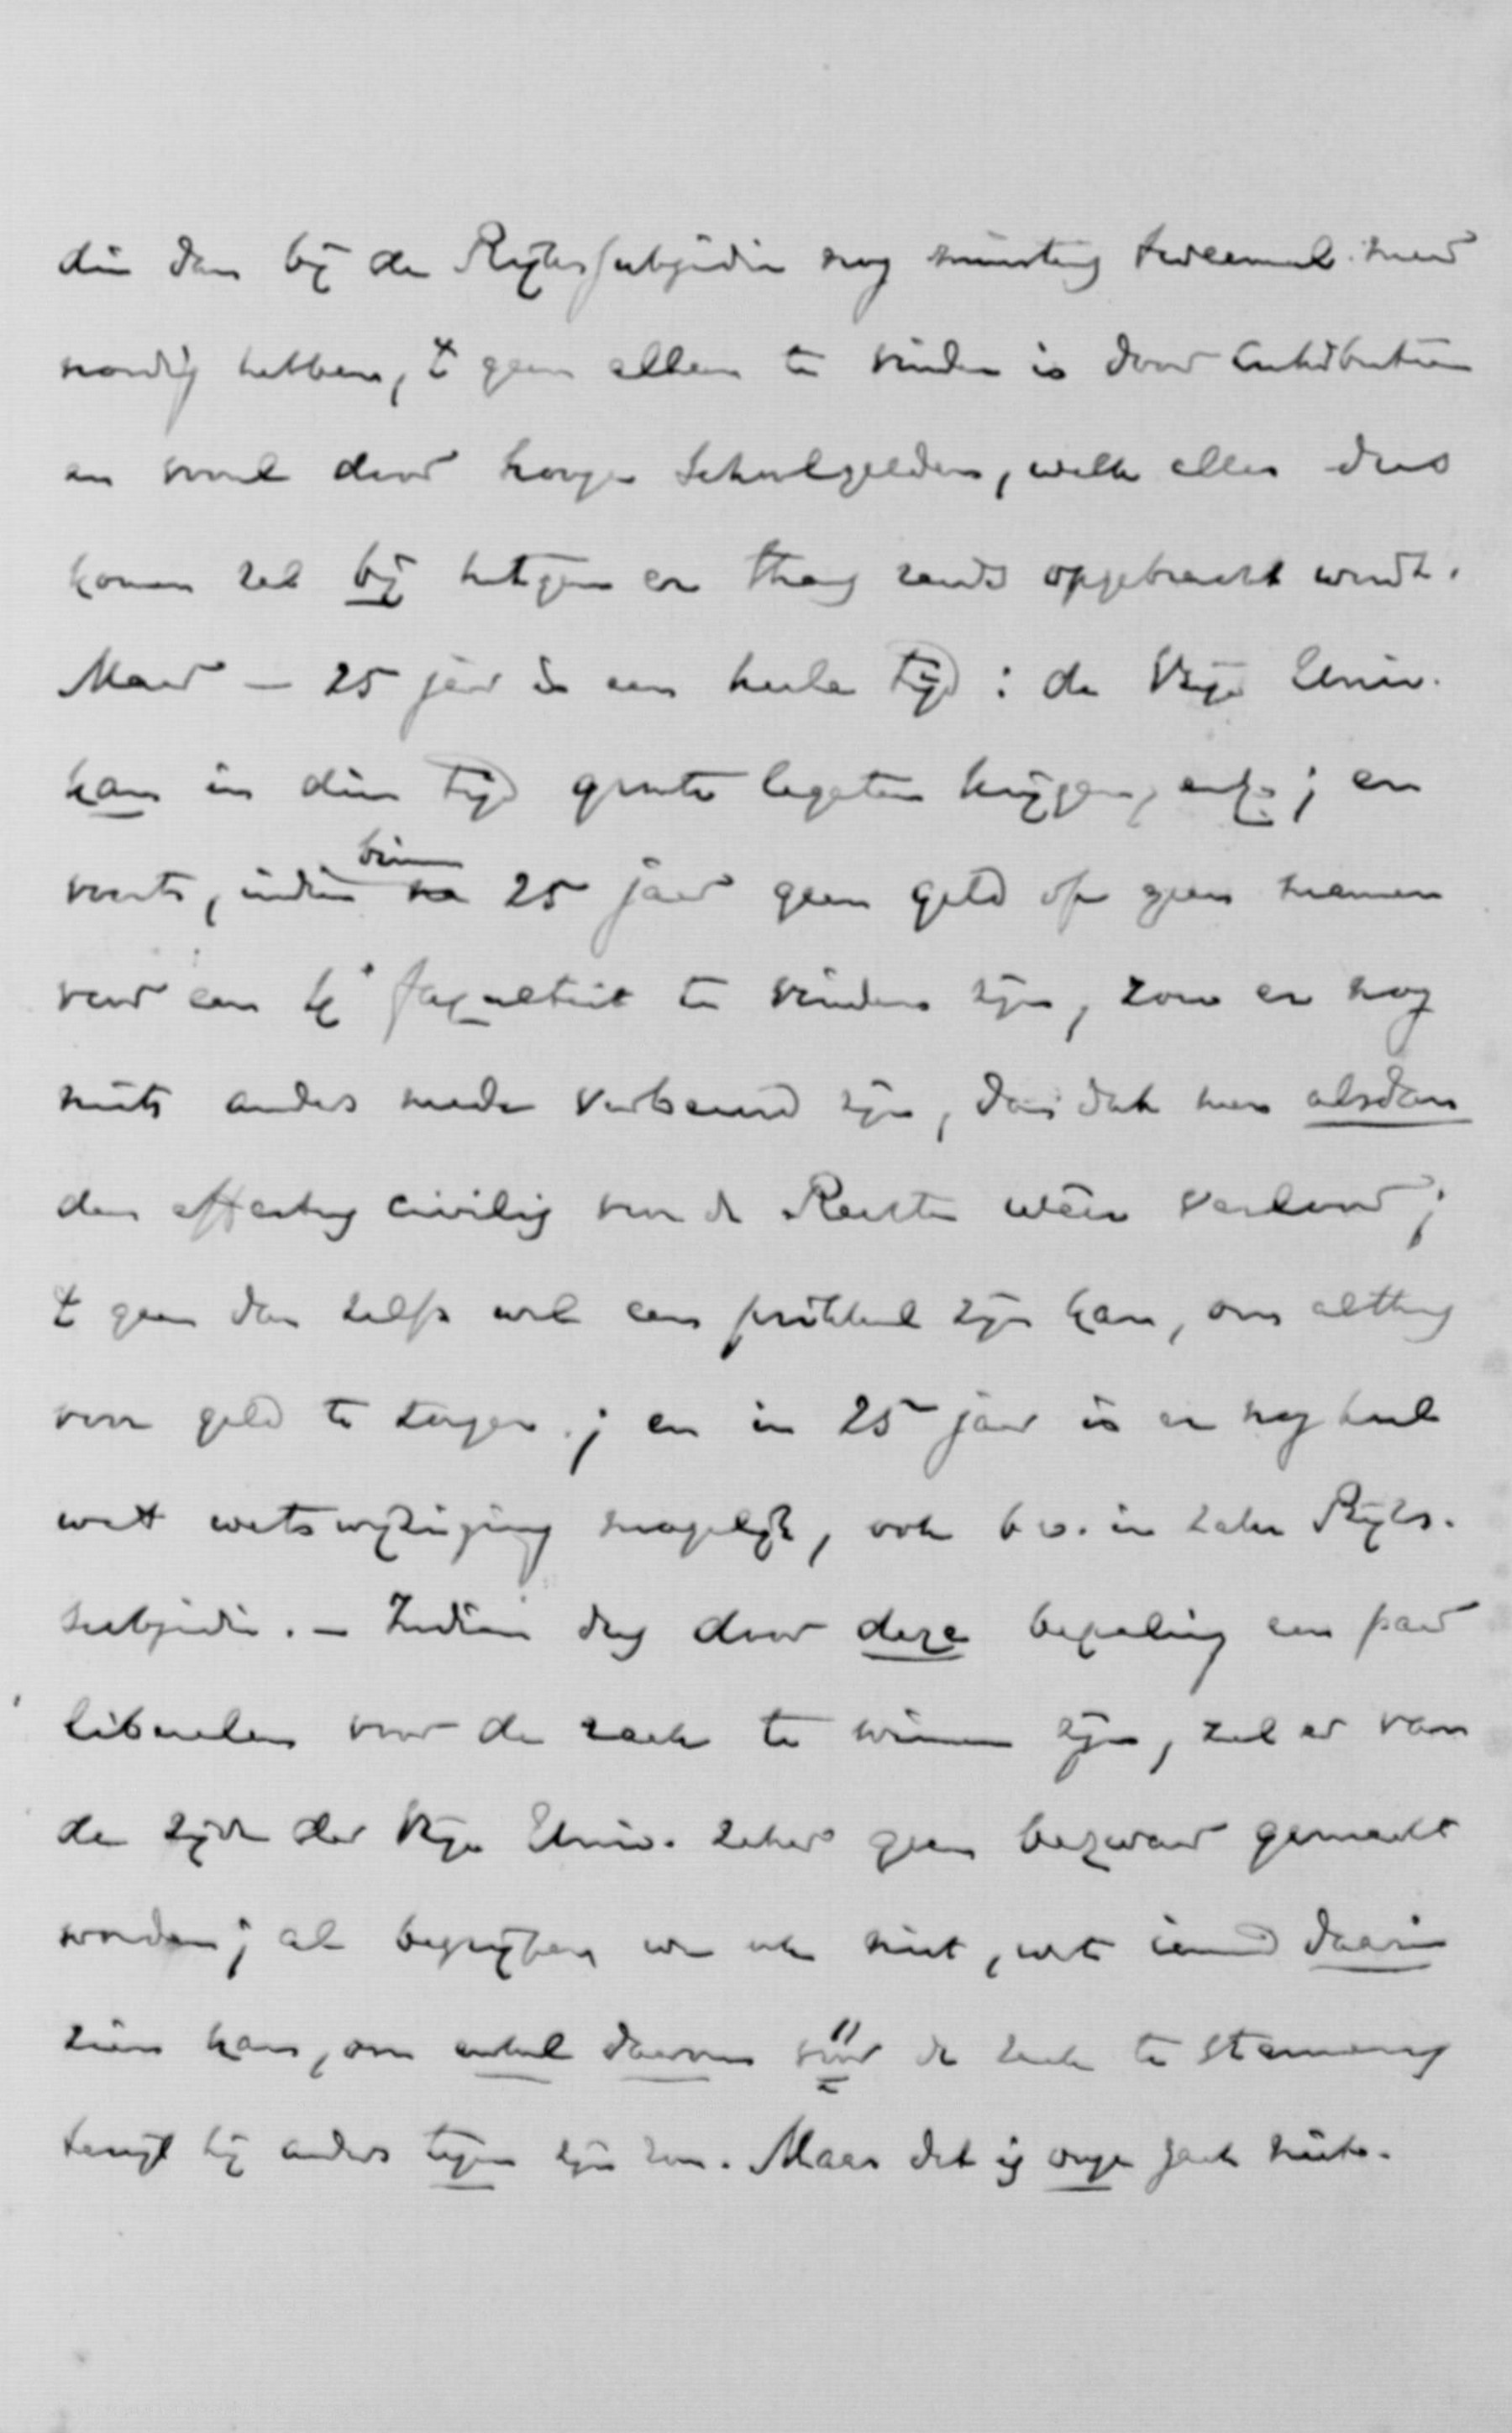 die dan bij de Rijkssubsidie nog minstens tweemaal meer
noodig hebben, 't geen alleen te vinden is door contributiën
en vooral door hooge schoolgelden, welk alles dus
komen zal bij hetgeen er thans reeds opgebracht wordt.
Maar — 25 jaar is een heele tijd: de Vrije Univ.
kan in dien tijd groote legaten krijgen, enz.; en
voorts, indien binnen 25 jaar geen geld of geen mannen
voor een 4e faculteit te vinden zijn, zou er nog
niets anders mede verbeurd zijn, dan dat men alsdan
den effectus civilis voor de Rechten weer verloor;
't geen dan zelfs wel een prikkel zijn kan, om althans
voor geld te zorgen; en in 25 jaar is er nog heel
wat wetswijziging mogelijk, ook b.v. in zake Rijks-
subsidie. — Indien dus door deze bepaling een paar
liberalen voor de zaak te winnen zijn, zal er van
de zijde der Vrije Univ. zeker geen bezwaar gemaakt
worden; al begrijpen we ook niet, wat iemand daarin
zien kan, om enkel daarom vóór de zaak te stemmen,
terwijl hij anders tegen zijn zou. Maar dat is onze zaak niet.